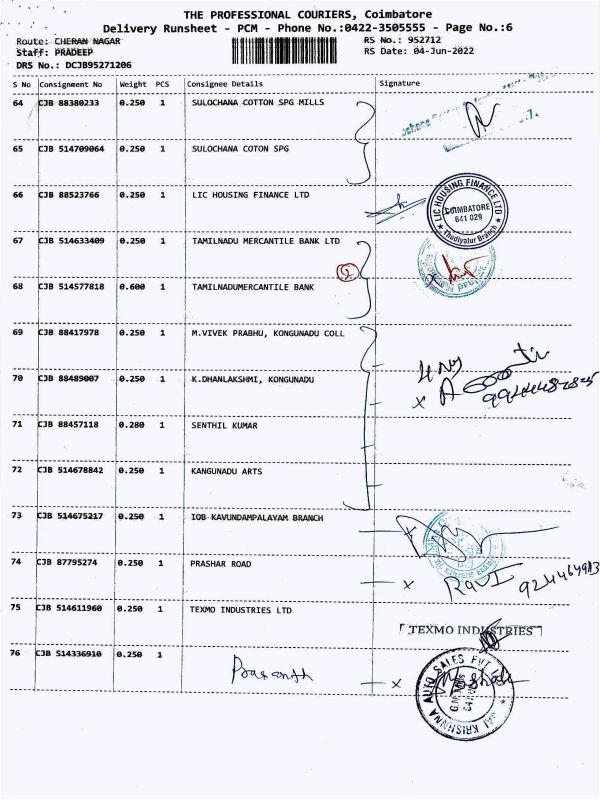 THE PROFESSIONAL COURIERS, Coimbatore
Delivery Runsheet - PCM - Phone No.:0422-3505555 - Page No.:6
Route: CHERAN NAGAR RS No.: 952712
Staff: PRADEEP RS Date: 04-Jun-2022
DRS No.: DCJB95271206
S No Consignment No Weight PCS Consignee Details Signature
64 CJB 88380233 0.250 1 SULOCHANA COTTON SPG MILLS
65 CJB 514709064 0.250 1 SULOCHANA COTON SPG
66 CJB 88523766 0.250 1 LIC HOUSING FINANCE LTD
LIC HOUSING FINANCE LTD
COIMBATORE
641 029
Thudiyalur Branch
67 CJB 514633409 0.250 1 TAMILNADU MERCANTILE BANK LTD
2
68 CJB 514577818 0.600 1 TAMILNADUMERCANTILE BANK
69 CJB 88417978 0.250 1 M.VIVEK PRABHU, KONGUNADU COLL
70 CJB 88489007 0.250 1 K.DHANLAKSHMI, KONGUNADU
71 CJB 88457118 0.280 1 SENTHIL KUMAR
72 CJB 514678842 0.250 1 KANGUNADU ARTS
73 CJB 514675217 0.250 1 IOB KAVUNDAMPALAYAM BRANCH
74 CJB 87795274 0.250 1 PRASHAR ROAD
x Ravi
75 CJB 514611960 0.250 1 TEXMO INDUSTRIES LTD
TEXMO INDUSTRIES
76 CJB 514336910 0.250 1 Prasanth
SAI KRISHNNA AUTO SALES PVT